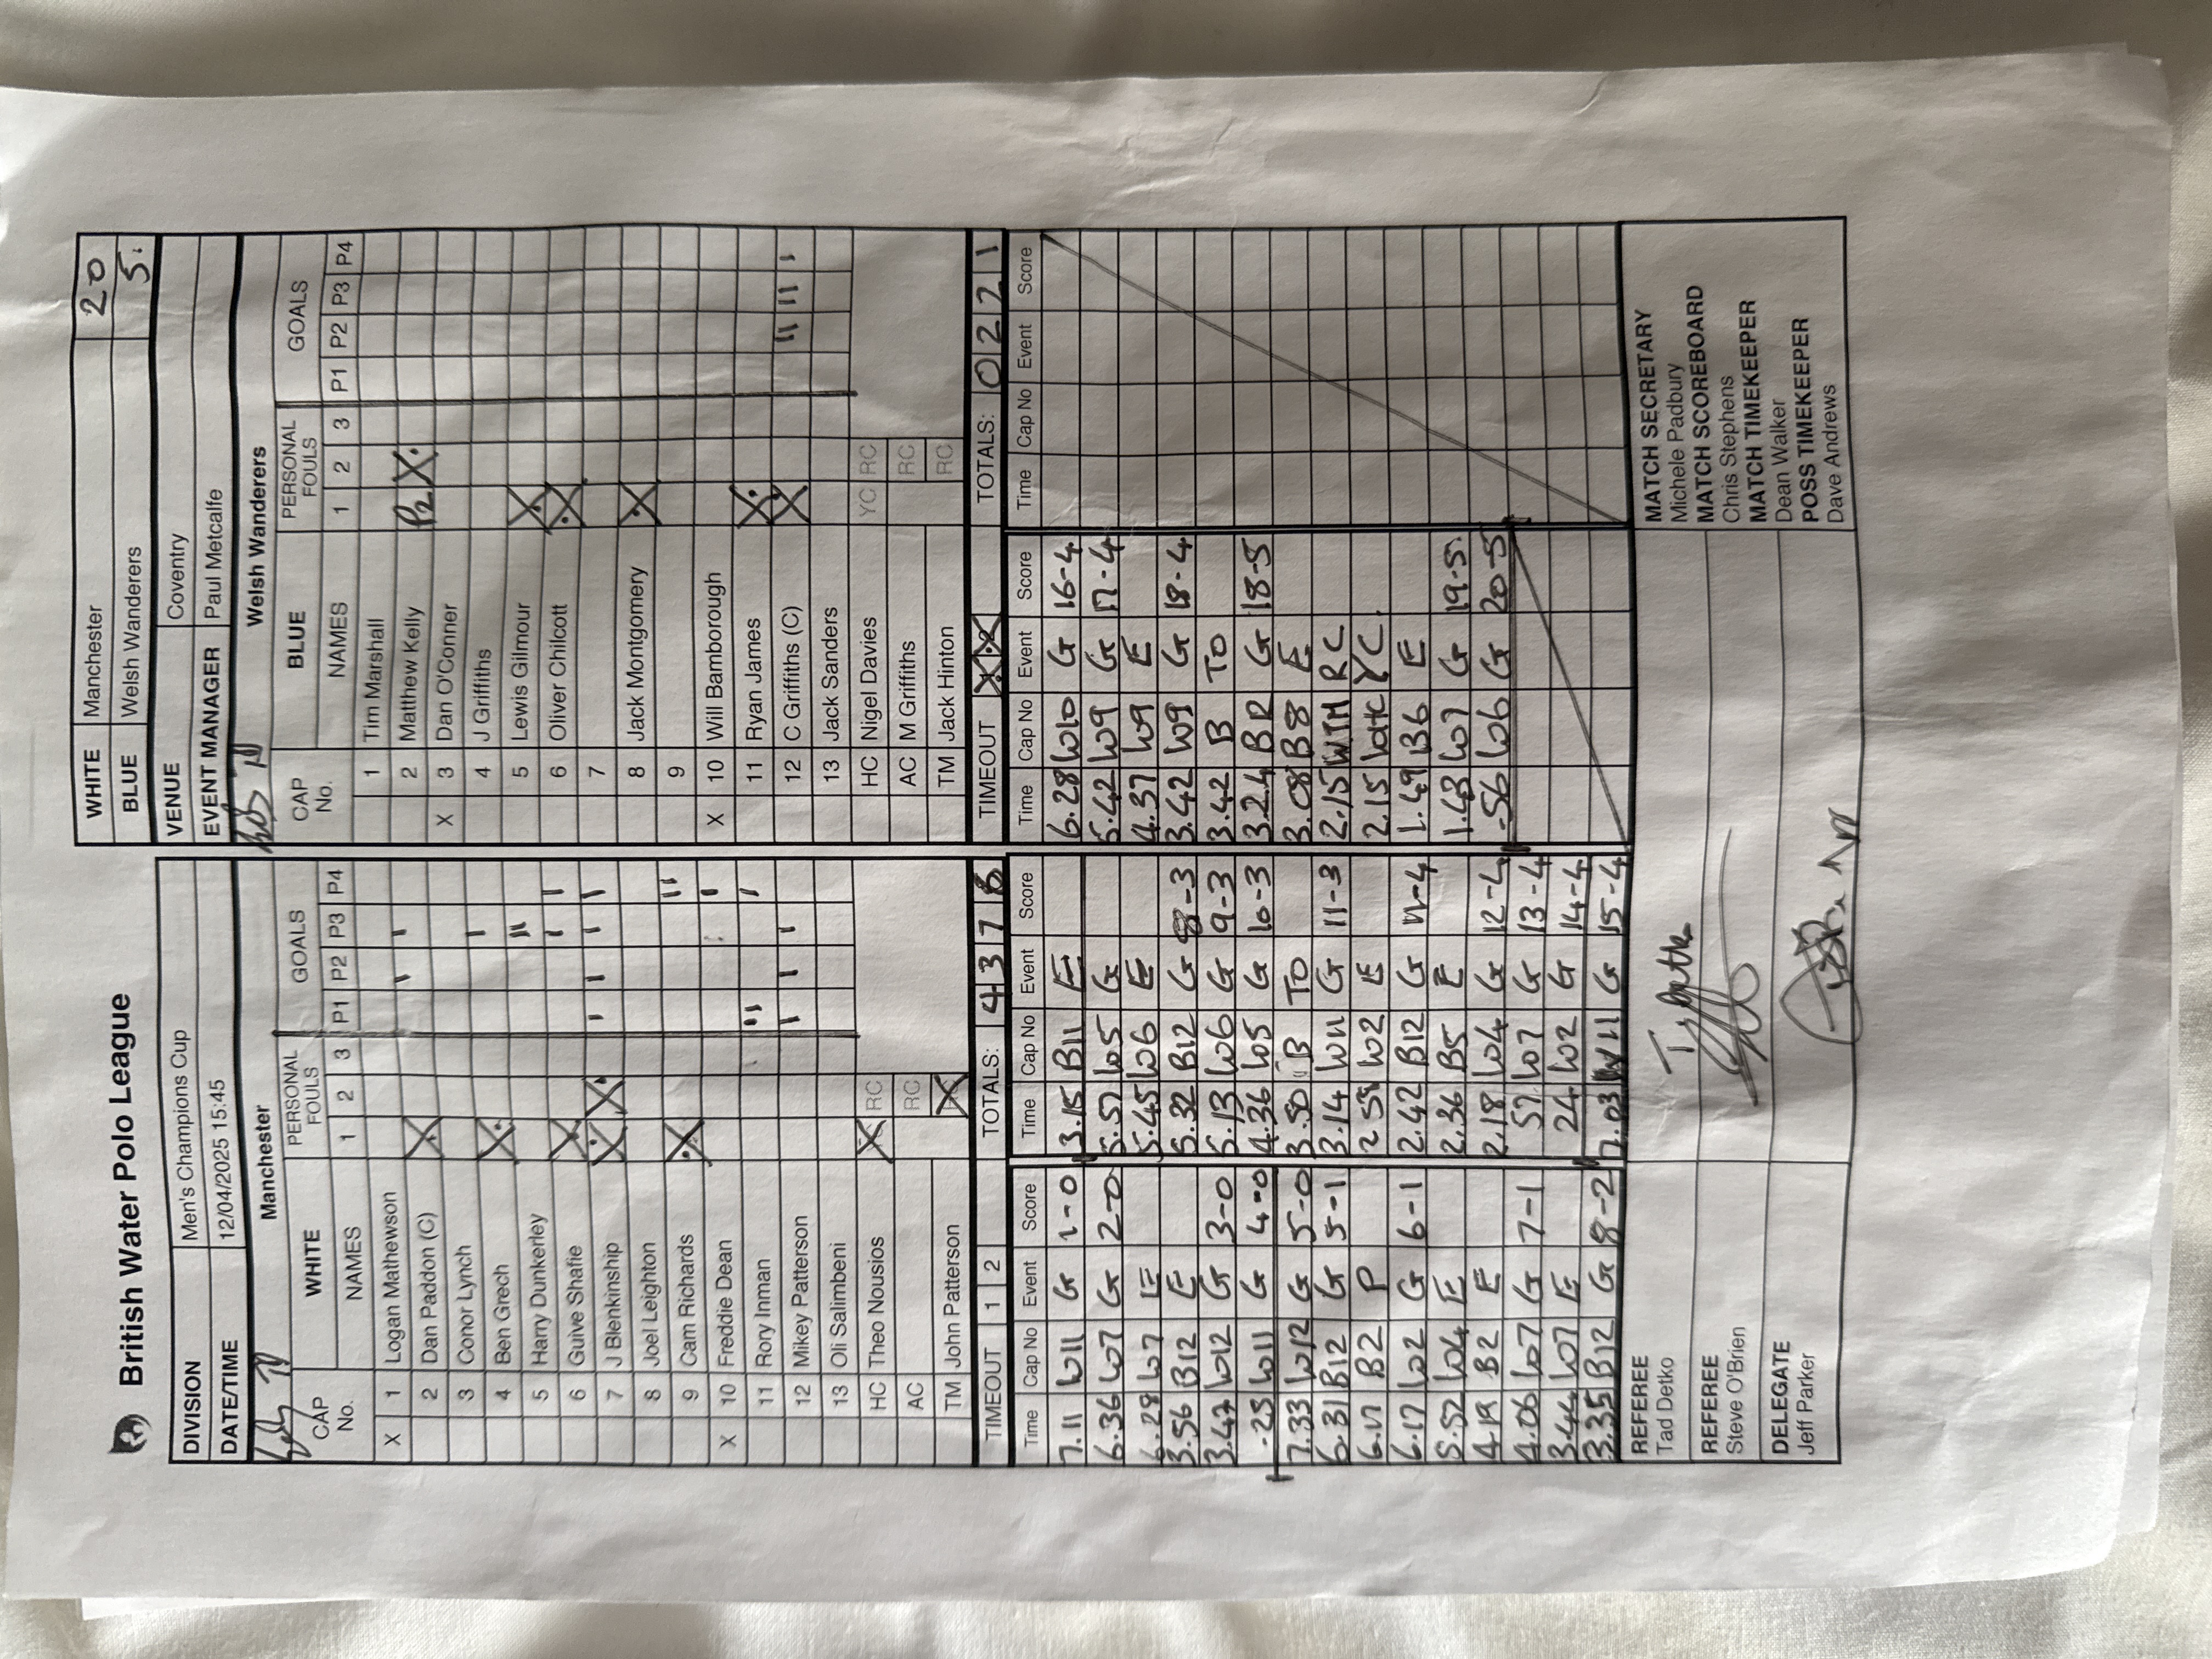 British Water Polo League
DIVISION Men's Champions Cup
DATE/TIME 12/04/2025 15:45
WHITE Manchester 20
BLUE Welsh Wanderers 5
VENUE Coventry
EVENT MANAGER Paul Metcalfe
Manchester
CAP No. WHITE NAMES PERSONAL FOULS 1 2 3 GOALS P1 P2 P3 P4
X 1 Logan Mathewson
2 Dan Paddon (C) X I I
3 Conor Lynch
4 Ben Grech X I
5 Harry Dunkerley II
6 Guive Shafie X I I
7 J Blenkinship X X I I I I
8 Joel Leighton
9 Cam Richards X II
X 10 Freddie Dean I
11 Rory Inman II I
12 Mikey Patterson I I I
13 Oli Salimbeni
HC Theo Nousios X RC
AC RC
TM John Patterson X
TIMEOUT 1 2 TOTALS: 4 3 7 6
Welsh Wanderers
CAP No. BLUE NAMES PERSONAL FOULS 1 2 3 GOALS P1 P2 P3 P4
1 Tim Marshall
2 Matthew Kelly P2 X
X 3 Dan O'Conner
4 J Griffiths
5 Lewis Gilmour X
6 Oliver Chilcott X
7
8 Jack Montgomery X
9
X 10 Will Bamborough
11 Ryan James X
12 C Griffiths (C) X II II I
13 Jack Sanders
HC Nigel Davies YC RC
AC M Griffiths RC
TM Jack Hinton RC
TIMEOUT X X TOTALS: 0 2 2 1
Time Cap No Event Score
7.11 W11 G 1-0
6.36 W7 G 2-0
6.28 W7 E
3.56 B12 E
3.47 W12 G 3-0
.25 W11 G 4-0
7.33 W12 G 5-0
6.31 B12 G 5-1
6.17 B2 P
6.17 W2 G 6-1
5.52 W4 E
4.19 B2 E
4.06 W7 G 7-1
3.44 W7 E
3.35 B12 G 8-2
Time Cap No Event Score
3.15 B11 E
5.57 W5 G
5.45 W6 E
5.32 B12 G 8-3
5.13 W6 G 9-3
4.36 W5 G 10-3
3.50 B TO
3.14 W11 G 11-3
2.55 W2 E
2.42 B12 G 11-4
2.36 B5 E
2.18 W4 G 12-4
57 W7 G 13-4
24 W2 G 14-4
7.03 W11 G 15-4
Time Cap No Event Score
6.28 W10 G 16-4
5.42 W9 G 17-4
4.37 W9 E
3.42 W9 G 18-4
3.42 B TO
3.24 B12 G 18-5
3.08 B8 E
2.15 WTM RC
2.15 WHC YC
1.49 B6 E
1.43 W7 G 19-5
.56 W6 G 20-5
Time Cap No Event Score
REFEREE
Tad Detko
REFEREE
Steve O'Brien
DELEGATE
Jeff Parker
MATCH SECRETARY
Michele Padbury
MATCH SCOREBOARD
Chris Stephens
MATCH TIMEKEEPER
Dean Walker
POSS TIMEKEEPER
Dave Andrews